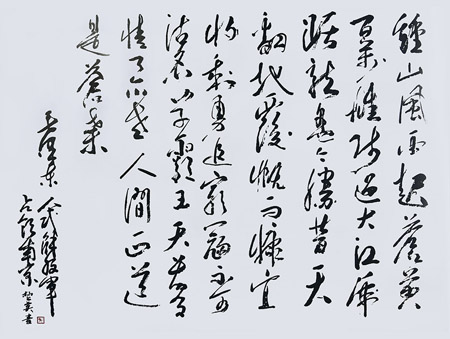 鍾山風雨起蒼黄
百萬雄师过大江虎
踞龍盤今勝昔天
翻地覆慨而慷宜
将剩勇追窮寇不可
沽名学霸王天若有
情天亦老人間正道
是蒼桑
毛澤东人民解放軍
占领南京